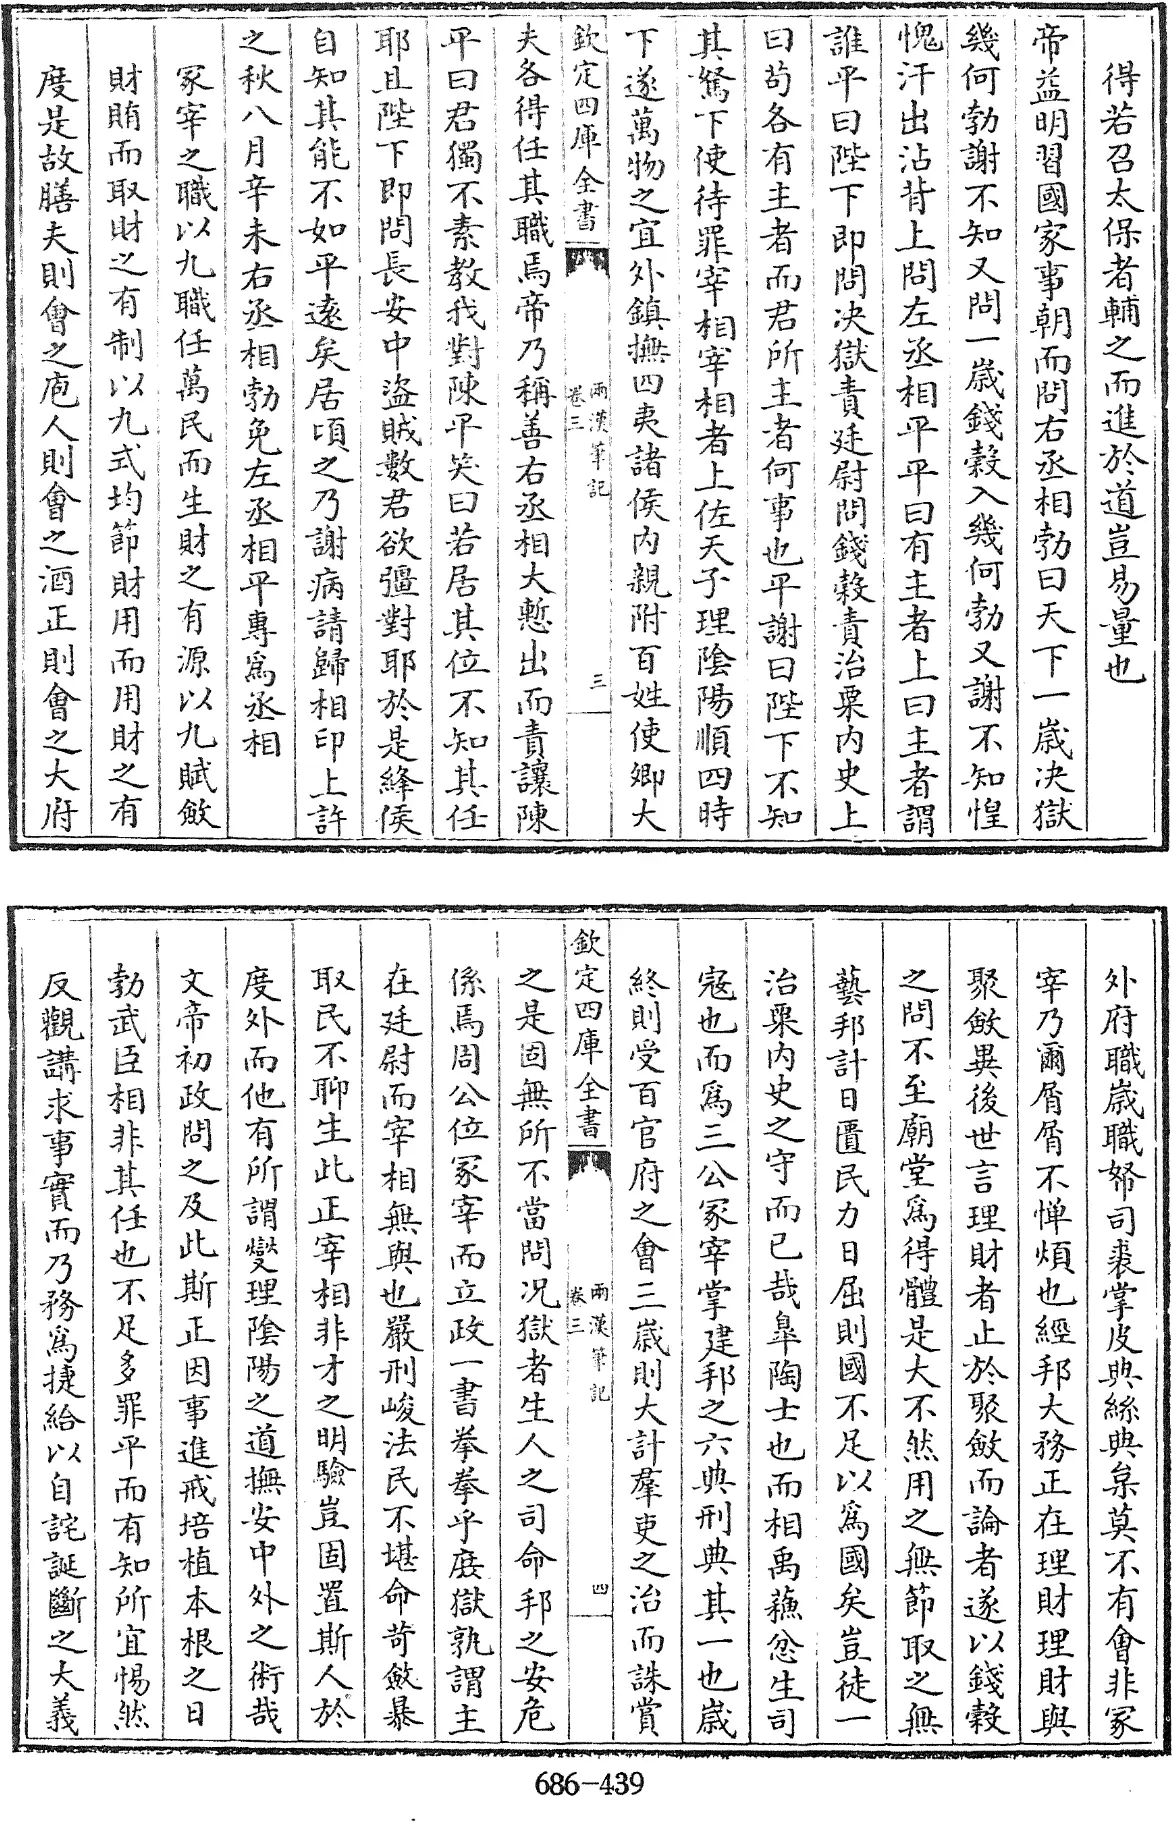 得若召太保者輔之而進於道豈易量也
帝益明習國家事朝而問右丞相勃曰天下一歲決獄
幾何勃謝不知又問一歲錢穀入幾何勃又謝不知惶
愧汗出沾背上問左丞相平平曰有主者上曰主者謂
誰平曰陛下即問決獄責廷尉問錢穀責治粟內史上
曰苟各有主者而君所主者何事也平謝曰陛下不知
其駑下使待罪宰相宰相者上佐天子理陰陽順四時
下遂萬物之宜外鎮撫四夷諸侯內親附百姓使卿大
欽定四庫全書
兩漢筆記
卷三
三
夫各得任其職焉帝乃稱善右丞相大慙出而責讓陳
平曰君獨不素教我對陳平笑曰若居其位不知其任
耶且陛下即問長安中盜賊數君欲彊對耶於是絳侯
自知其能不如平遠矣居頃之乃謝病請歸相印上許
之秋八月辛未右丞相勃免左丞相平專爲丞相
冢宰之職以九職任萬民而生財之有源以九賦斂
財賄而取財之有制以九式均節財用而用財之有
度是故膳夫則會之庖人則會之酒正則會之大府
外府職歲職幣司裘掌皮典絲典枲莫不有會非冢
宰乃爾屑屑不憚煩也經邦大務正在理財理財與
聚斂異後世言理財者止於聚斂而論者遂以錢穀
之問不至廟堂爲得體是大不然用之無節取之無
藝邦計日匱民力日屈則國不足以爲國矣豈徒一
治粟內史之守而已哉臯陶士也而相禹蘇忿生司
寇也而爲三公冢宰掌建邦之六典刑典其一也歲
終則受百官府之會三歲則大計羣吏之治而誅賞
欽定四庫全書
兩漢筆記
卷三
四
之是固無所不當問况獄者生人之司命邦之安危
係焉周公位冢宰而立政一書拳拳乎庶獄孰謂主
在廷尉而宰相無與也嚴刑峻法民不堪命苛斂暴
取民不聊生此正宰相非才之明驗豈固置斯人於
度外而他有所謂燮理陰陽之道撫安中外之術哉
文帝初政問之及此斯正因事進戒培植本根之日
勃武臣相非其任也不足多罪平而有知所宜惕然
反觀講求事實而乃務爲捷給以自詫誕斷之大義
686-439